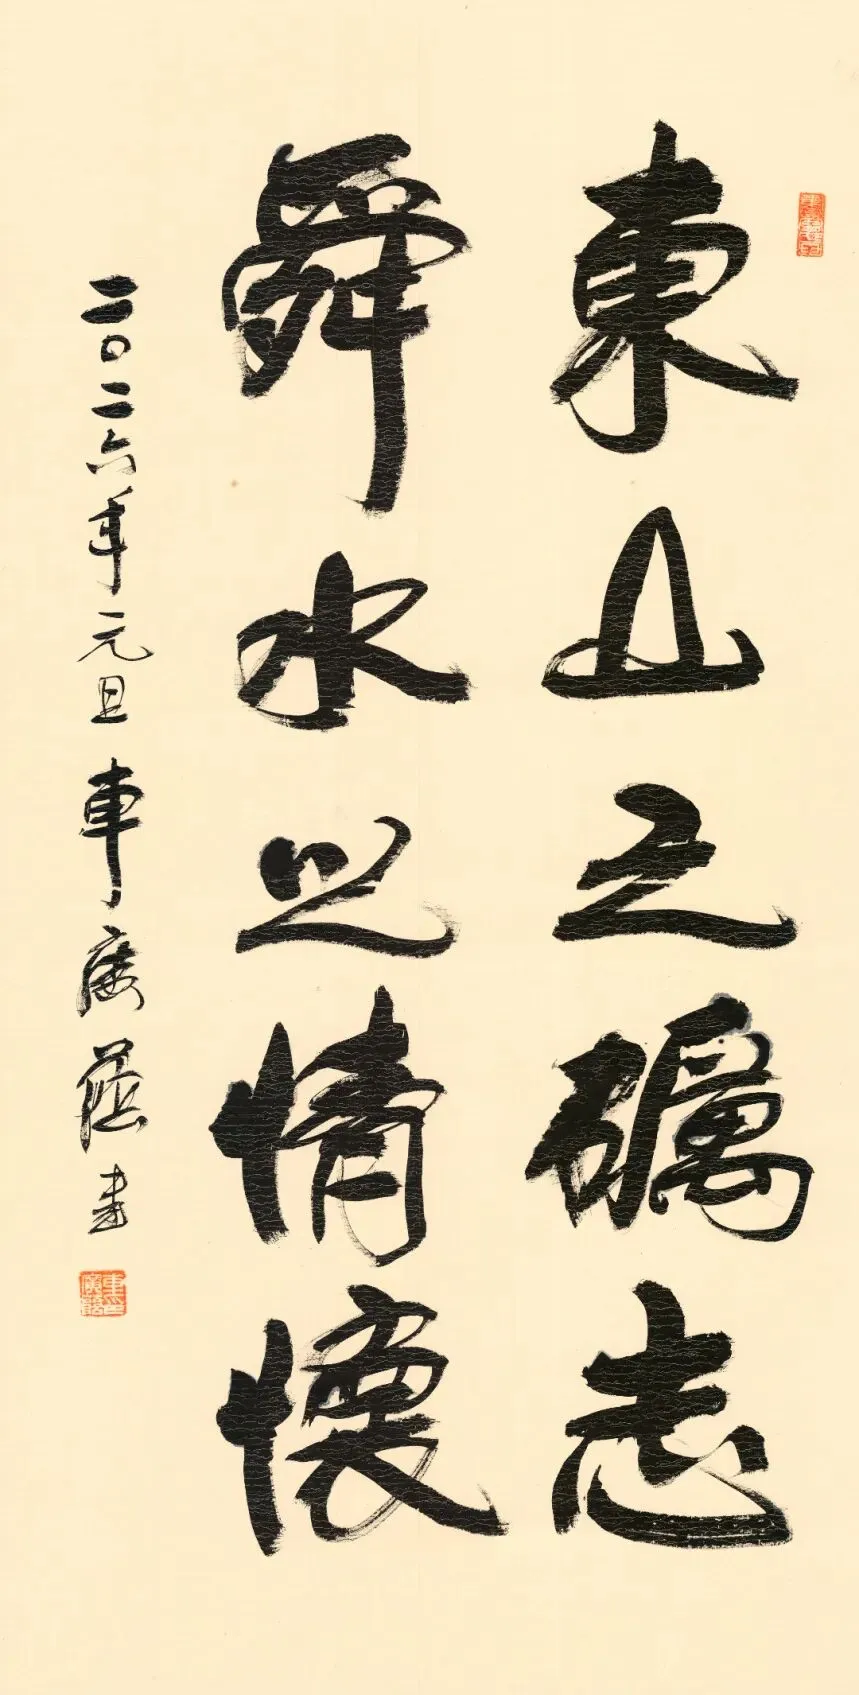 東山之礪志
舜水之情懷
二〇二六年元旦車廣蔭書